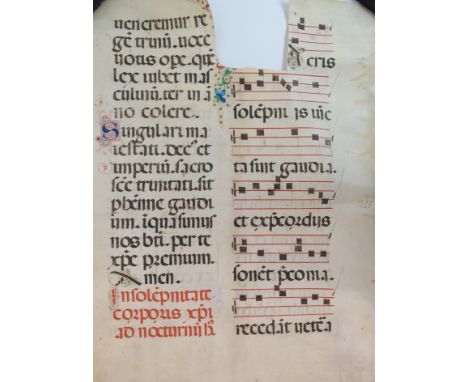 ueneremur re
gē trinū. uoce
uotis ope. que
lex iubet mas
culinū. ter in a
no colere.
Singulari ma
iestati. Dec̄ et
imperiū. sacro
scē trinitati. sit
phēnne gaudi
um. in qua simus
nos bn̄i. per te
xp̄e premium.
Amen.
In solēpnitate
corporis xp̄i
ad nocturnū hȳ
cris
solēpni is iūc
ta sint gaudia.
et exp̄cordiis
sonēt p̄conia.
recedāt uetēa